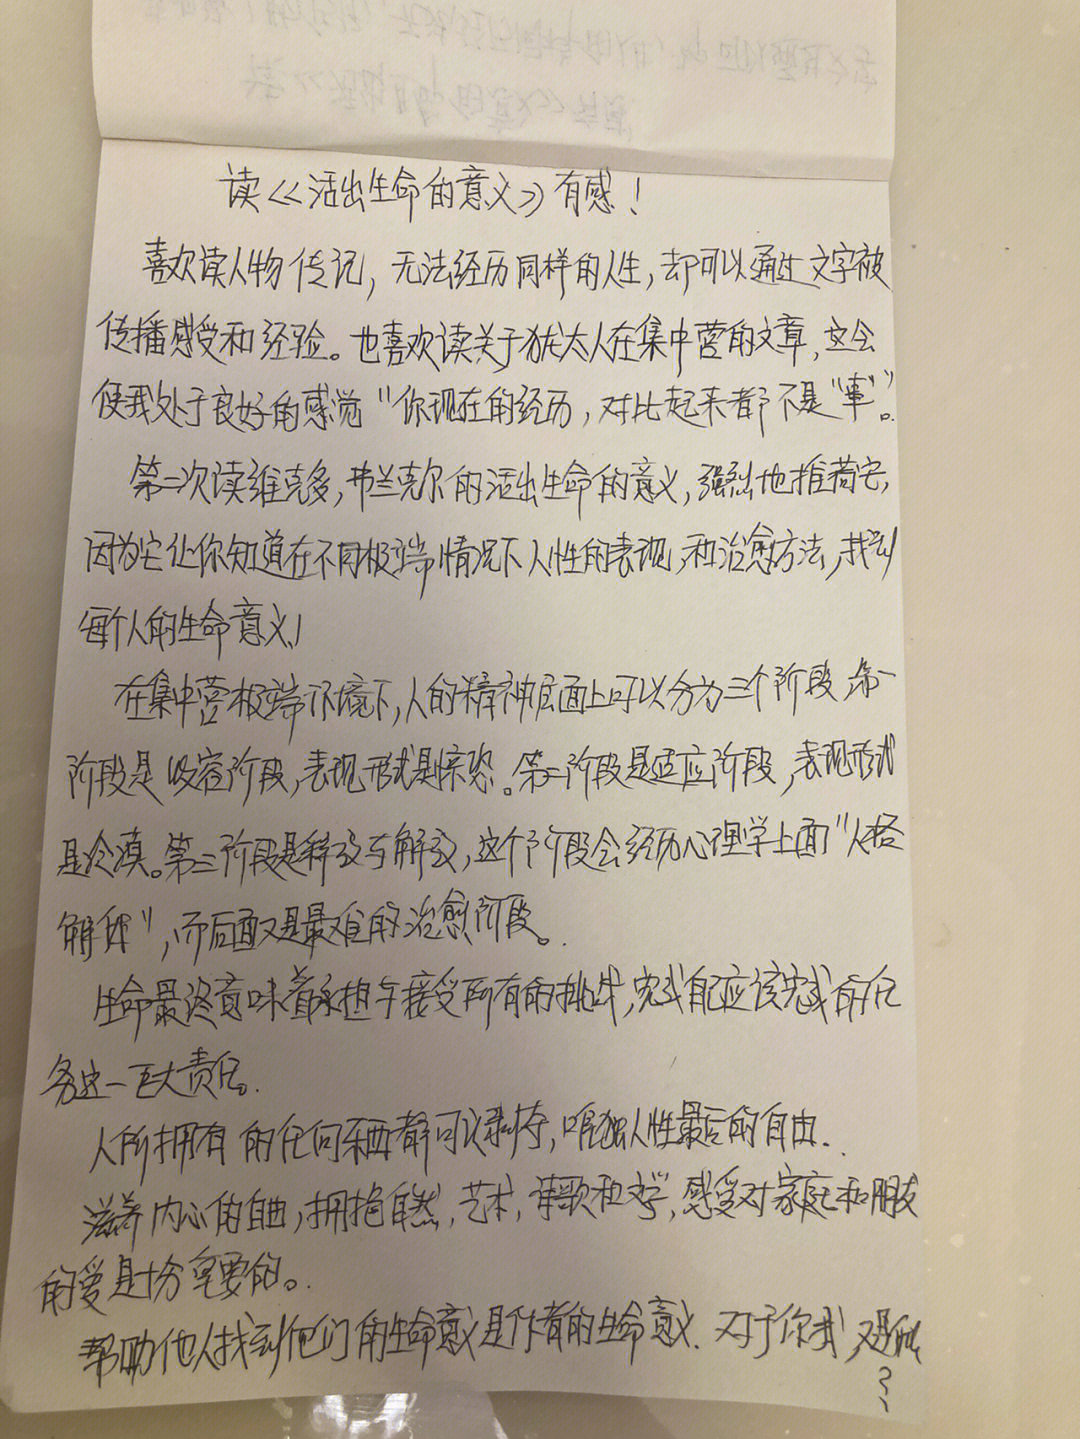 读《活出生命的意义》有感！
喜欢读人物传记，无法经历同样的人生，却可以通过文字被
传播感受和经验。也喜欢读关于犹太人在集中营的文章，这会
使我处于良好的感觉“你现在的经历，对比起来都不是“事”。
第二次读维克多，弗兰克尔的活出生命的意义，强烈地推荐它，
因为它让你知道在不同极端情况下人性的表现，和治愈方法，找到
每个人的生命意义！
在集中营极端环境下，人的精神层面上可以分为三个阶段 第一
阶段是收容阶段，表现形式是惊恐。第二阶段是适应阶段，表现形式
是冷漠。第三阶段是释放与解放，这个阶段会经历心理学上面“人格
解体”，而后面又是最难的治愈阶段。
生命最终意味着承担与接受所有的挑战，完成自己应该完成的任
务这一巨大责任。
人所拥有的任何东西都可以剥夺，唯独人性最后的自由.
滋养内心的自由，拥抱自然，艺术，诗歌和文学，感受对家庭和朋友
的爱是十分重要的。
帮助他人找到他们的生命意义是作者的生命意义. 对于你我，又是
？